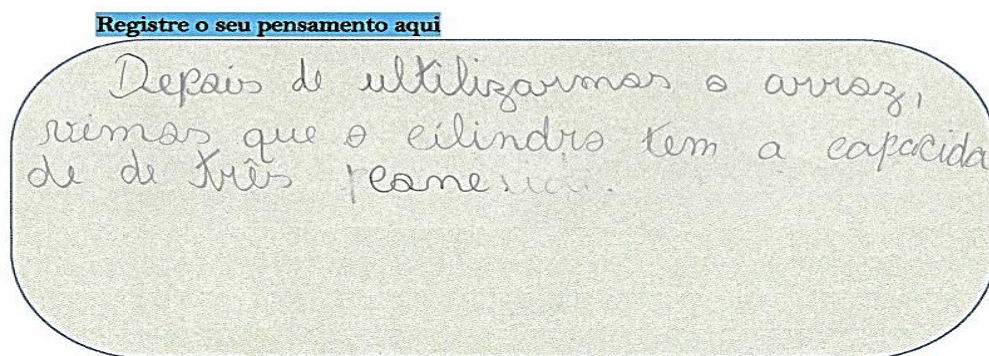 Registre o seu pensamento aqui
Depois de ultilizarmos o arroz,
vimos que o cilindro tem a capacida
de de três cones